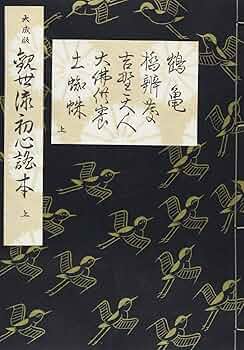 鶴亀
橋辨慶
吉野天人
大佛供養
土蜘蛛
上
大成版 観世流初心謡本 上